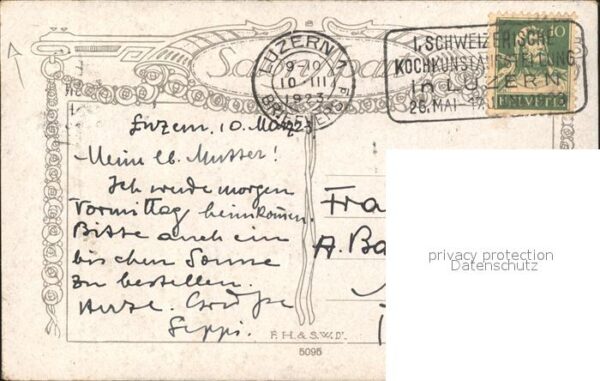 LUZERN 1
9-10
10. III
1923
BRIEFVERS
I. SCHWEIZERISCHE
KOCHKUNSTAUSSTELLUNG
in LUZERN
26. MAI
10
HELVETIA
Luzern, 10. März 23
Meine lb. Mutter!
Ich werde morgen
Vormittag heimkommen.
Bitte auch ein
bischen Sonne
zu bestellen.
Herzl. Grüsse
Seppi.
Fra
A. Ba
privacy protection
Datenschutz
F. H. & S. W. IX
5095